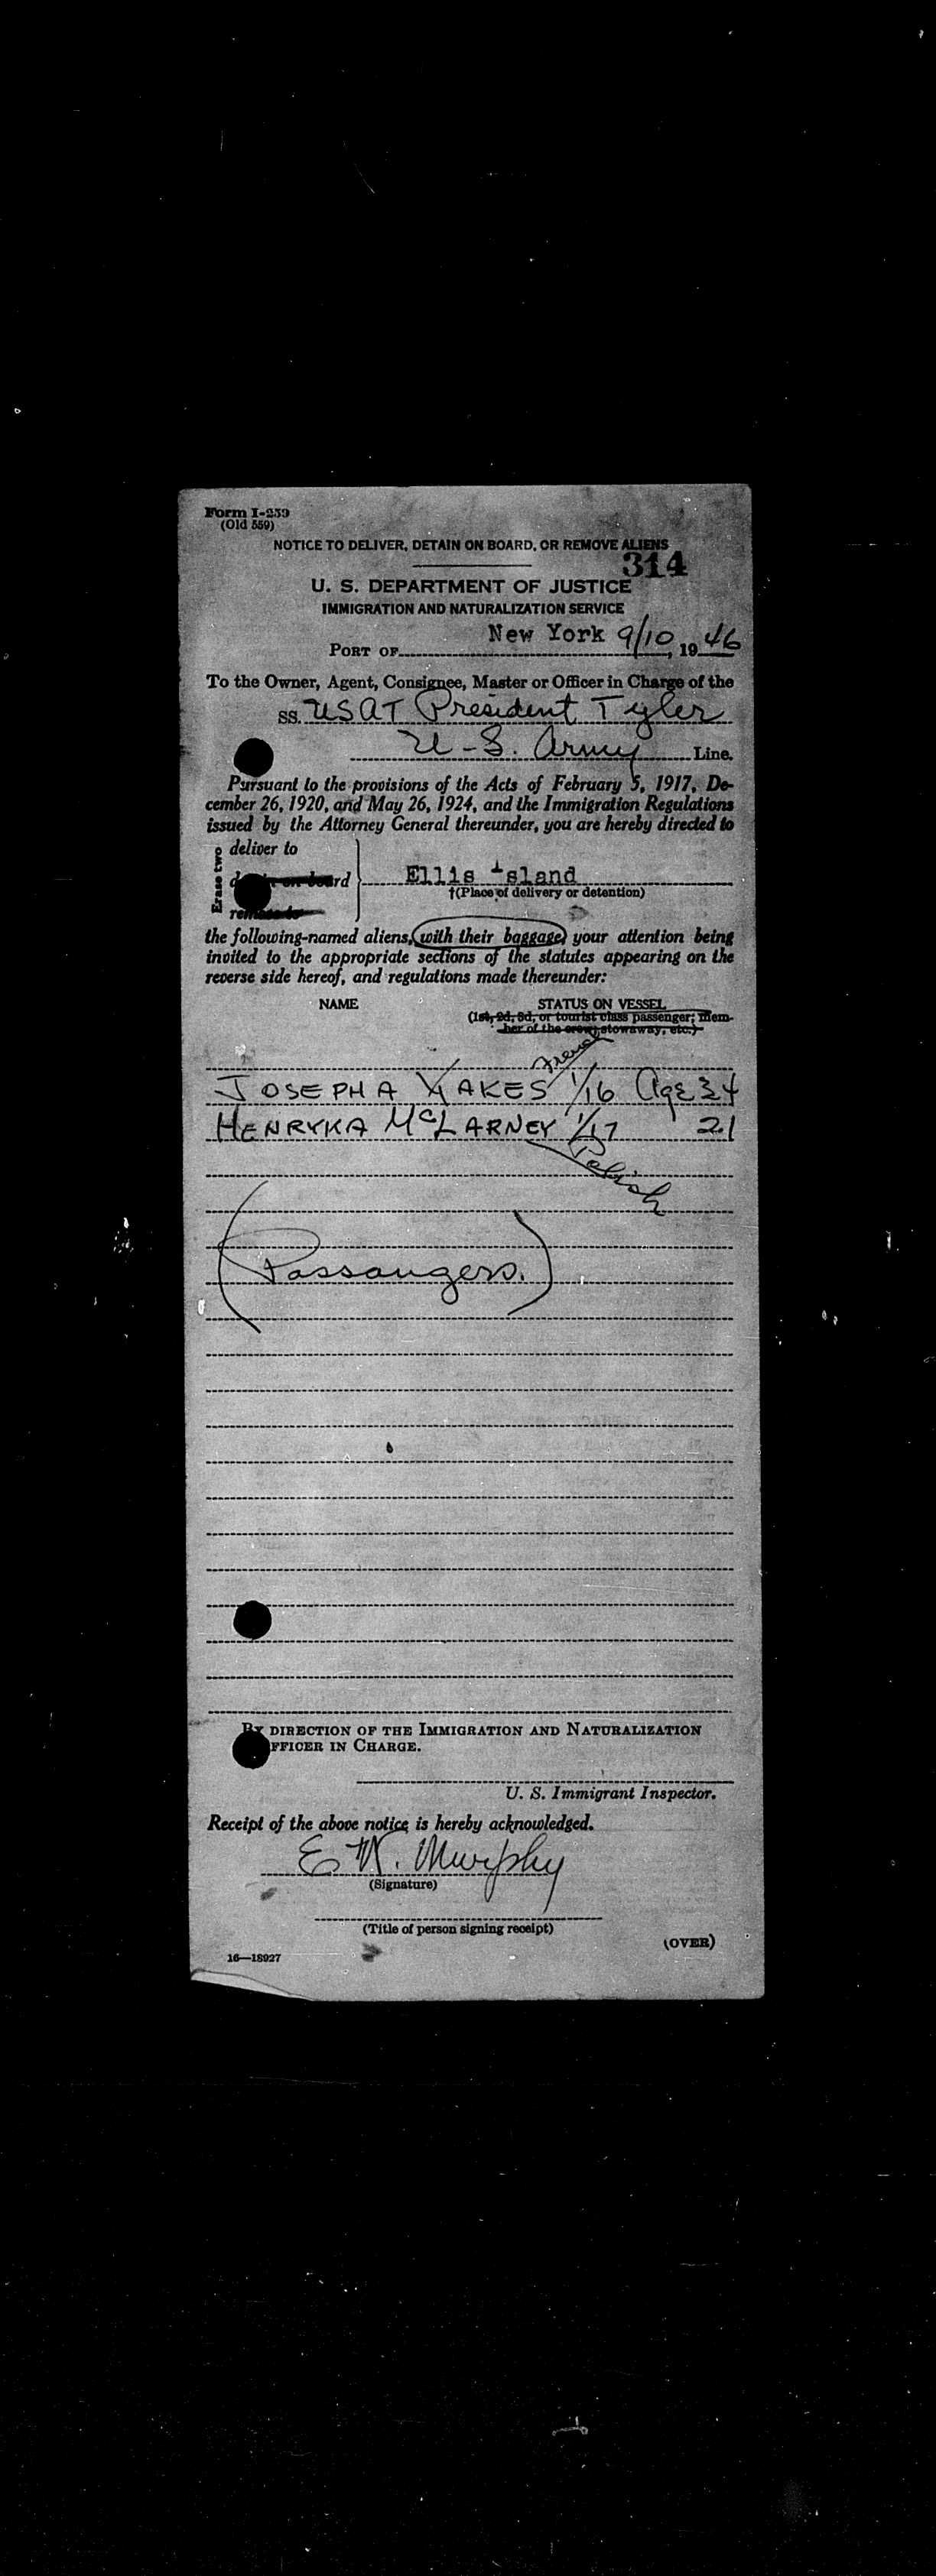 Form I-259
(Old 559)
NOTICE TO DELIVER, DETAIN ON BOARD, OR REMOVE ALIENS
314
U. S. DEPARTMENT OF JUSTICE
IMMIGRATION AND NATURALIZATION SERVICE
PORT OF New York 9/10, 1946
To the Owner, Agent, Consignee, Master or Officer in Charge of the
SS. USAT President Tyler
U-S. Army Line.
Pursuant to the provisions of the Acts of February 5, 1917, De-
cember 26, 1920, and May 26, 1924, and the Immigration Regulations
issued by the Attorney General thereunder, you are hereby directed to
Erase two
deliver to
on board Ellis Island
†(Place of delivery or detention)
remove to
the following-named aliens, with their baggage, your attention being
invited to the appropriate sections of the statutes appearing on the
reverse side hereof, and regulations made thereunder:
NAME STATUS ON VESSEL
(1st, 2d, 3d, or tourist class passenger; mem-
ber of the crew; stowaway, etc.)
French
JOSEPHA 1/16 Age 34
HENRYKA McLARNEY 1/17 21
Polish
(Passangers.)
BY DIRECTION OF THE IMMIGRATION AND NATURALIZATION
OFFICER IN CHARGE.
U. S. Immigrant Inspector.
Receipt of the above notice is hereby acknowledged.
E W. Murphy
(Signature)
(Title of person signing receipt)
(OVER)
16—18927